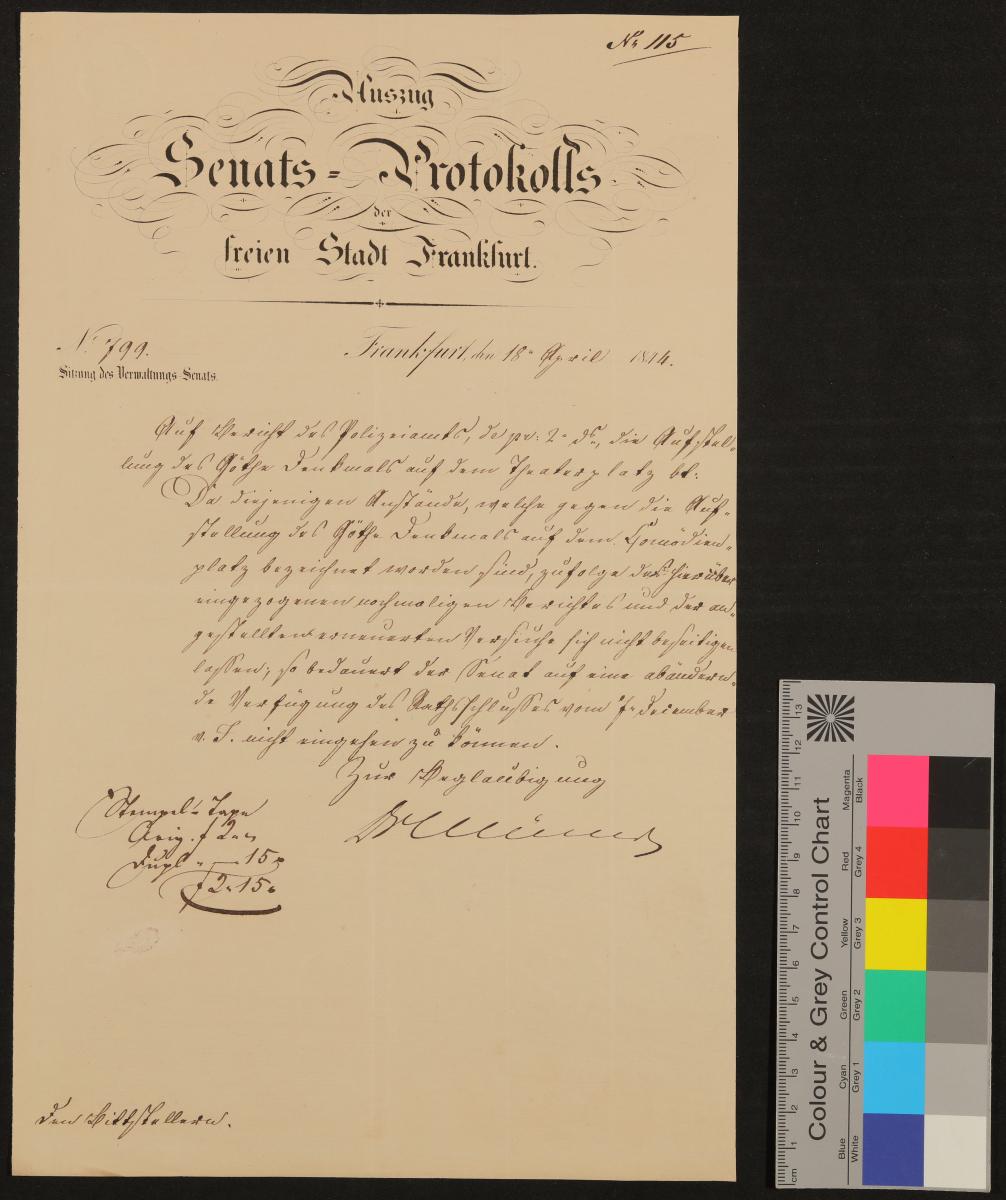 Nr 115
Auszug
Senats-Protokolls
der
freien Stadt Frankfurt.
N. 799.
Frankfurt, den 18n April 1844.
Sitzung des Verwaltungs-Senats.
Auf Bericht des Polizeiamts, de pr: 2n ds, die Aufstel-
lung des Göthe Denkmals auf dem Theaterplatz bt:
Da diejenigen Anstände, welche gegen die Auf-
stellung des Göthe Denkmals auf dem Comödien-
platz bezeichnet worden sind, zufolge des hierüber
eingezogenen nochmaligen Berichtes und der an-
gestellten erneuerten Versuche sich nicht beseitigen
lassen; so bedauert der Senat auf eine abändern-
de Verfügung des Rathsschlusses vom 7n December
v. J. nicht eingehen zu können.
Zur Beglaubigung
Stempel u. Taxe
Orig. f 2 " "
Dupl " — 15 x
f 2 " 15 "
Den Bittstellern.
cm 1 2 3 4 5 6 7 8 9 10 11 12 13
Colour & Grey Control Chart
Blue Cyan Green Yellow Red Magenta
White Grey 1 Grey 2 Grey 3 Grey 4 Black